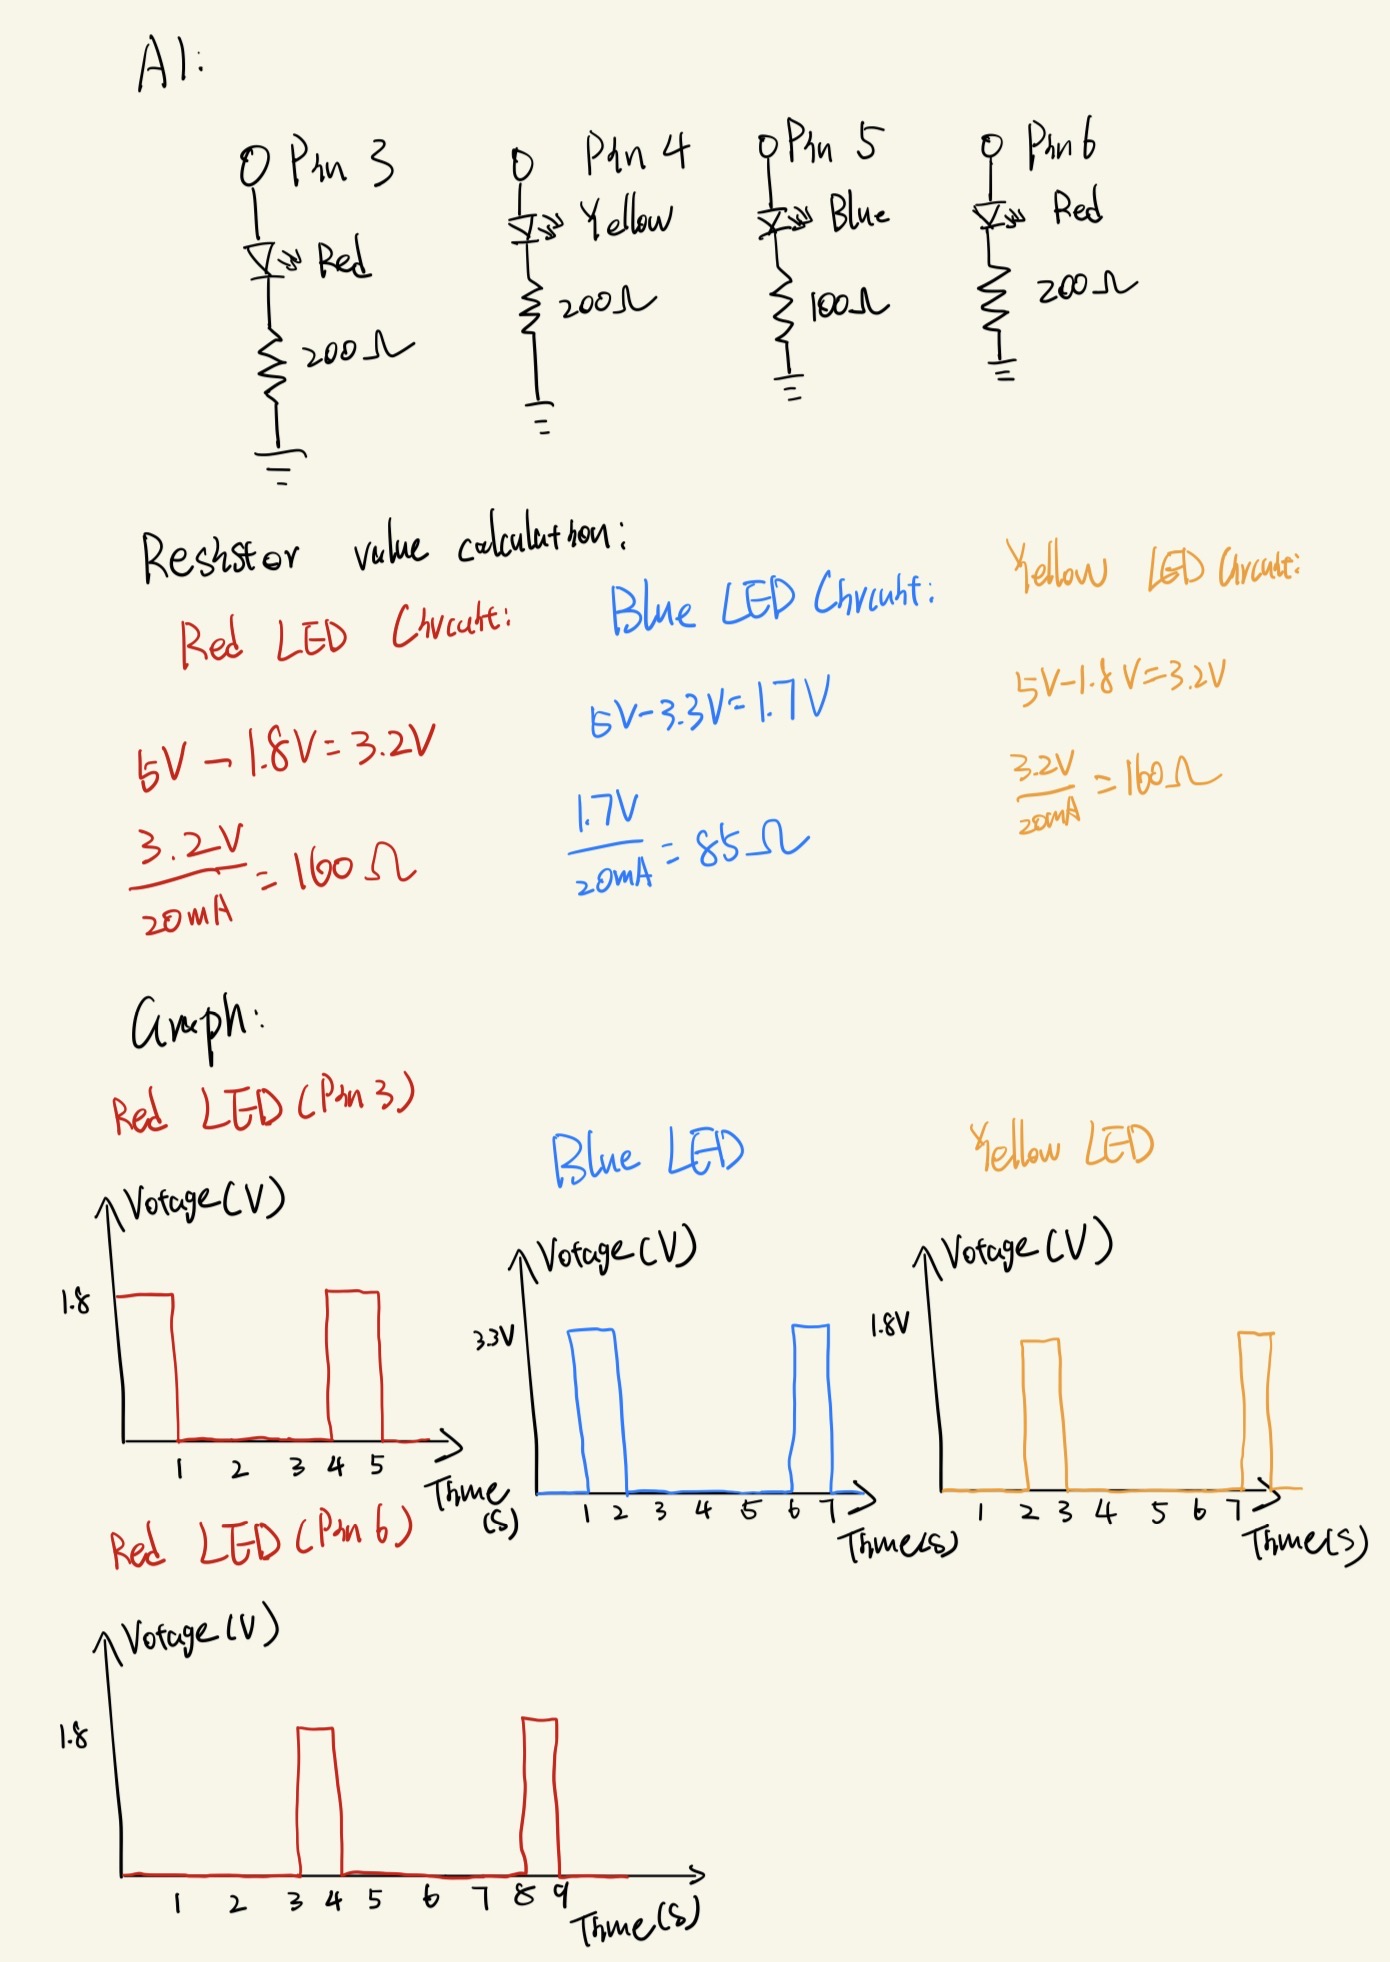 A1:
Pin 3 Pin 4 Pin 5 Pin 6
Red Yellow Blue Red
200Ω 200Ω 100Ω 200Ω
Resistor value calculation:
Red LED Circuit:
5V - 1.8V = 3.2V
3.2V
20mA
= 160Ω
Blue LED Circuit:
5V-3.3V=1.7V
1.7V
20mA
= 85Ω
Yellow LED Circuit:
5V-1.8V=3.2V
3.2V
20mA
= 160Ω
Graph:
Red LED (Pin 3)
Votage (V)
1.8
1 2 3 4 5
Time
(s)
Blue LED
Votage (V)
3.3V
1 2 3 4 5 6 7
Time(s)
Yellow LED
Votage (V)
1.8V
1 2 3 4 5 6 7
Time(s)
Red LED (Pin 6)
Votage (V)
1.8
1 2 3 4 5 6 7 8 9
Time(s)